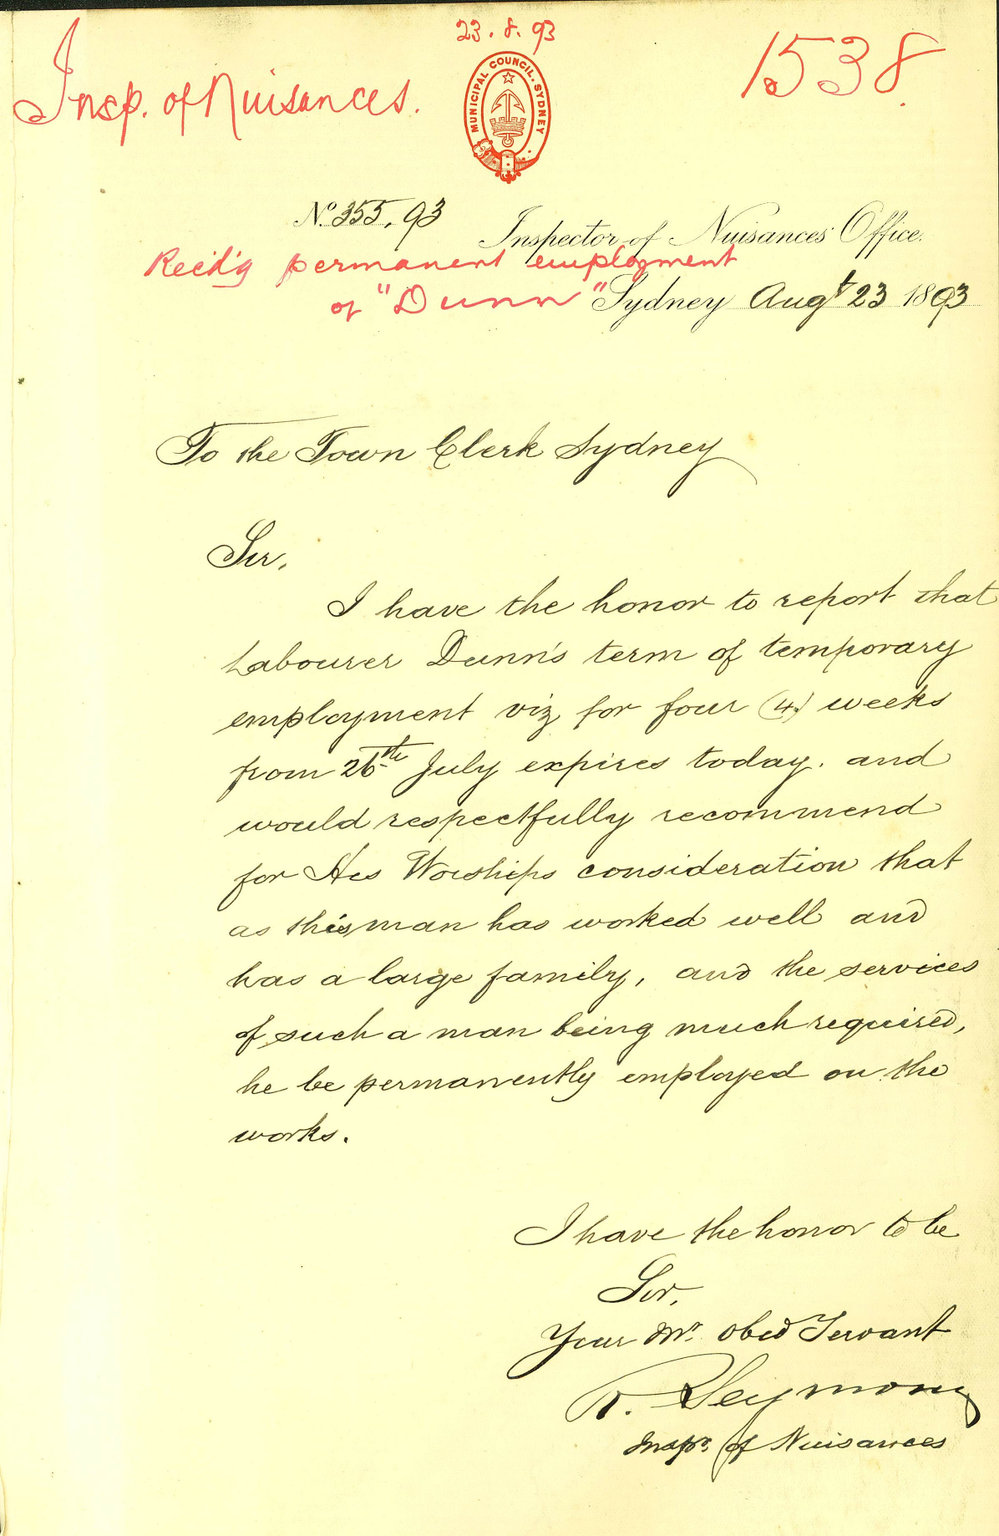 23.8.93
Insp. of Nuisances.
1538.
MUNICIPAL COUNCIL. SYDNEY
No. 355, 93
Inspector of Nuisances' Office.
Recd'g permanent employment
of "Dunn"
Sydney Augt 23 1893
To the Town Clerk Sydney
Sir,
I have the honor to report that
Labourer Dunn's term of temporary
employment viz for four (4) weeks
from 26th July expires today. and
would respectfully recommend
for His Worships consideration that
as this man has worked well and
has a large family, and the services
of such a man being much required,
he be permanently employed on the
works.
I have the honor to be
Sir,
Your Mt. obed Servant
R. Seymour
Inspr. of Nuisances